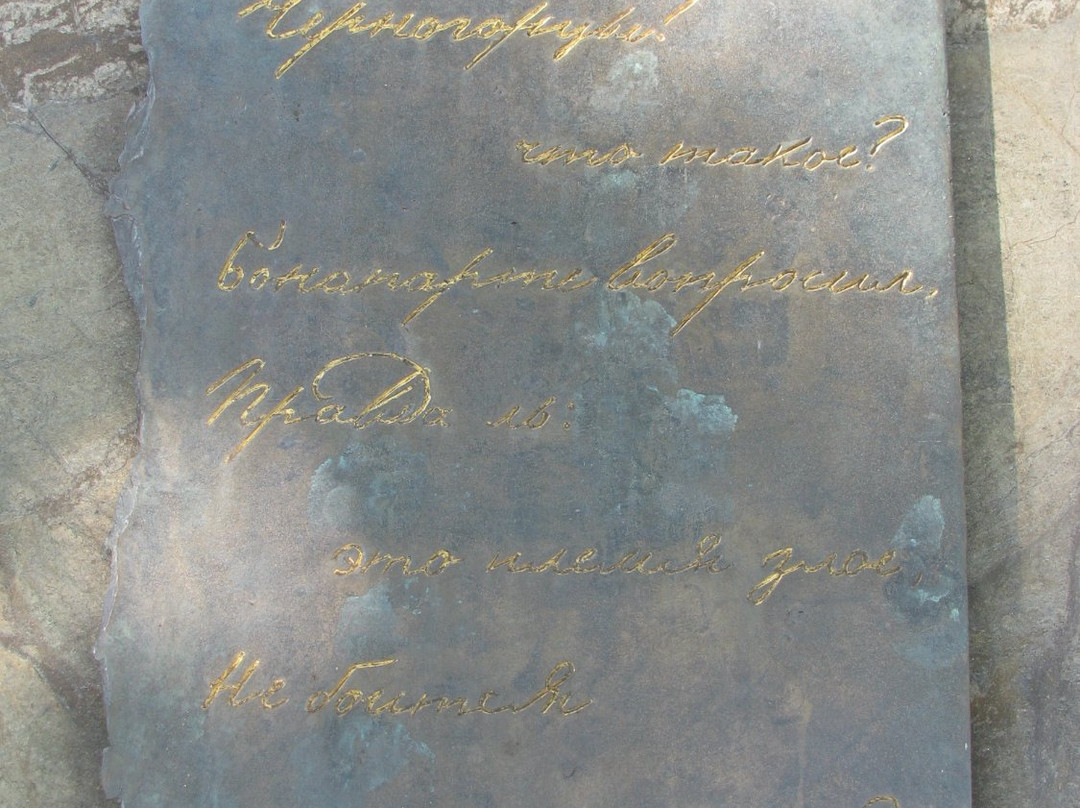 Черногорцы!
что такое?
Бонапарте вопросил.
Правда ль:
это племя злое,
Не боится